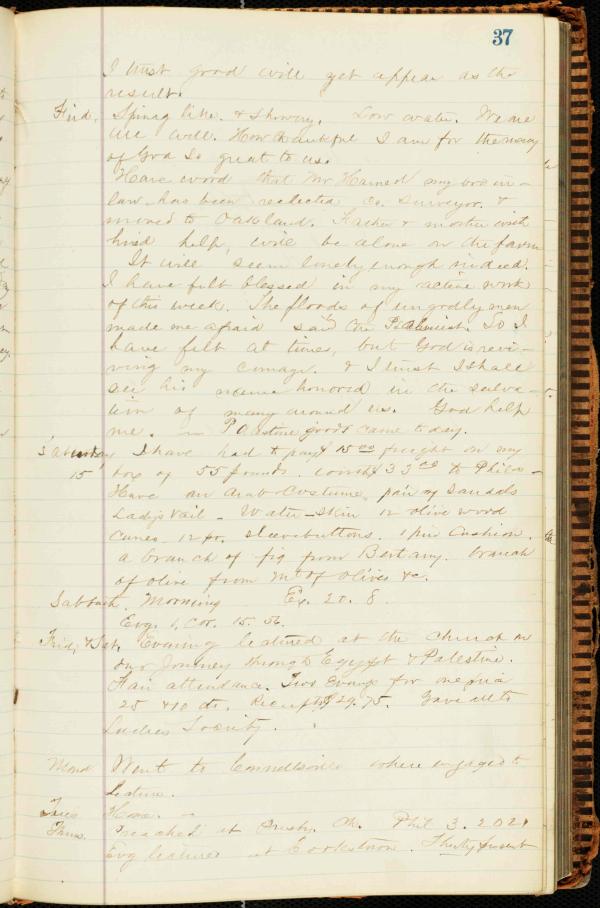 37
I trust good will yet appear as the
result.
Frid. Spring like. & Showery. Low water. We are
all well. How thankful I am for the mercy
of God so great to us.
Have word that Mr Harned my bro in-
law has been reelected Co. Surveyor. &
moved to Oakland. Father & mother with
hired help, will be alone on the farm
It will seem lonely enough indeed.
I have felt blessed in my active work
of this week. The floods of ungodly men
made me afraid said the Psalmist. So I
have felt at times, but God is revi-
ving my courage. & I trust I shall
see his name honored in the salva-
tion of many around us. God help
me. Palestine goods came to day.
Saturday I have had to pay $15 00 freight on my
15 box of 55 pounds. worth $33 00 to Phila-
Have an Arab Costume, pair of Sandals
Ladys Vail - Water-Skin 12 olive wood
Canes 12 pr. sleevebuttons. 1 Pin Cushion.
a branch of fig from Bethany. branch
of olive from Mt of Olives &c.
Sabbath. Morning Ex. 20. 8.
Evg. 1, Cor. 15. 56.
Frid, & Sat. Evening lectured at the church on
our Journey through Egypt & Palestine.
Fair attendance. Two Evengs for one price
25 & 10 cts. Receipts $29.75. Gave all to
Ladies Society.
Mond Went to Connellsville where engaged to
Lecture.
Tues Home.
Thurs. Preached at Brush. Ch. Phil 3. 20 21
Evg lectured at Cookstown. Thirty present